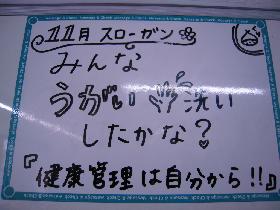 Message & Check
11月 スローガン
みんな
うがい 手洗い
したかな?
『健康管理は自分から!!』